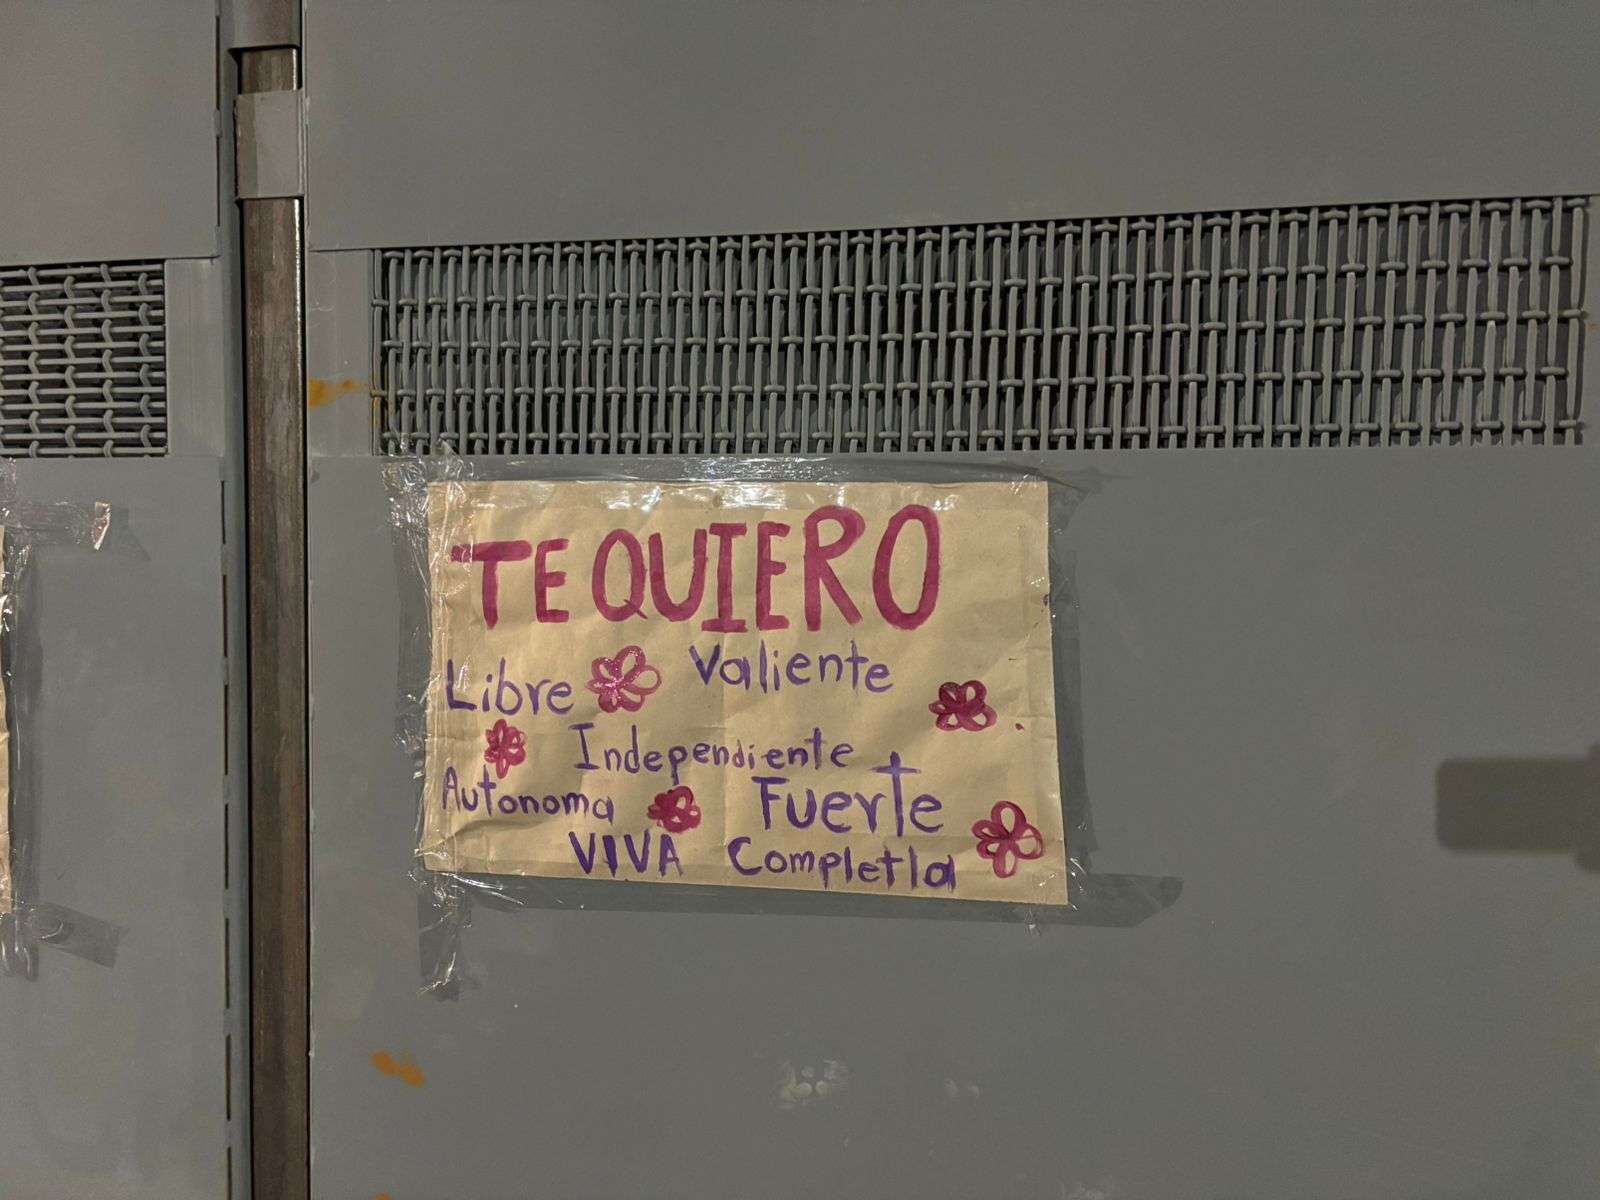 TE QUIERO
Libre Valiente
Independiente
Autonoma Fuerte
VIVA Completla